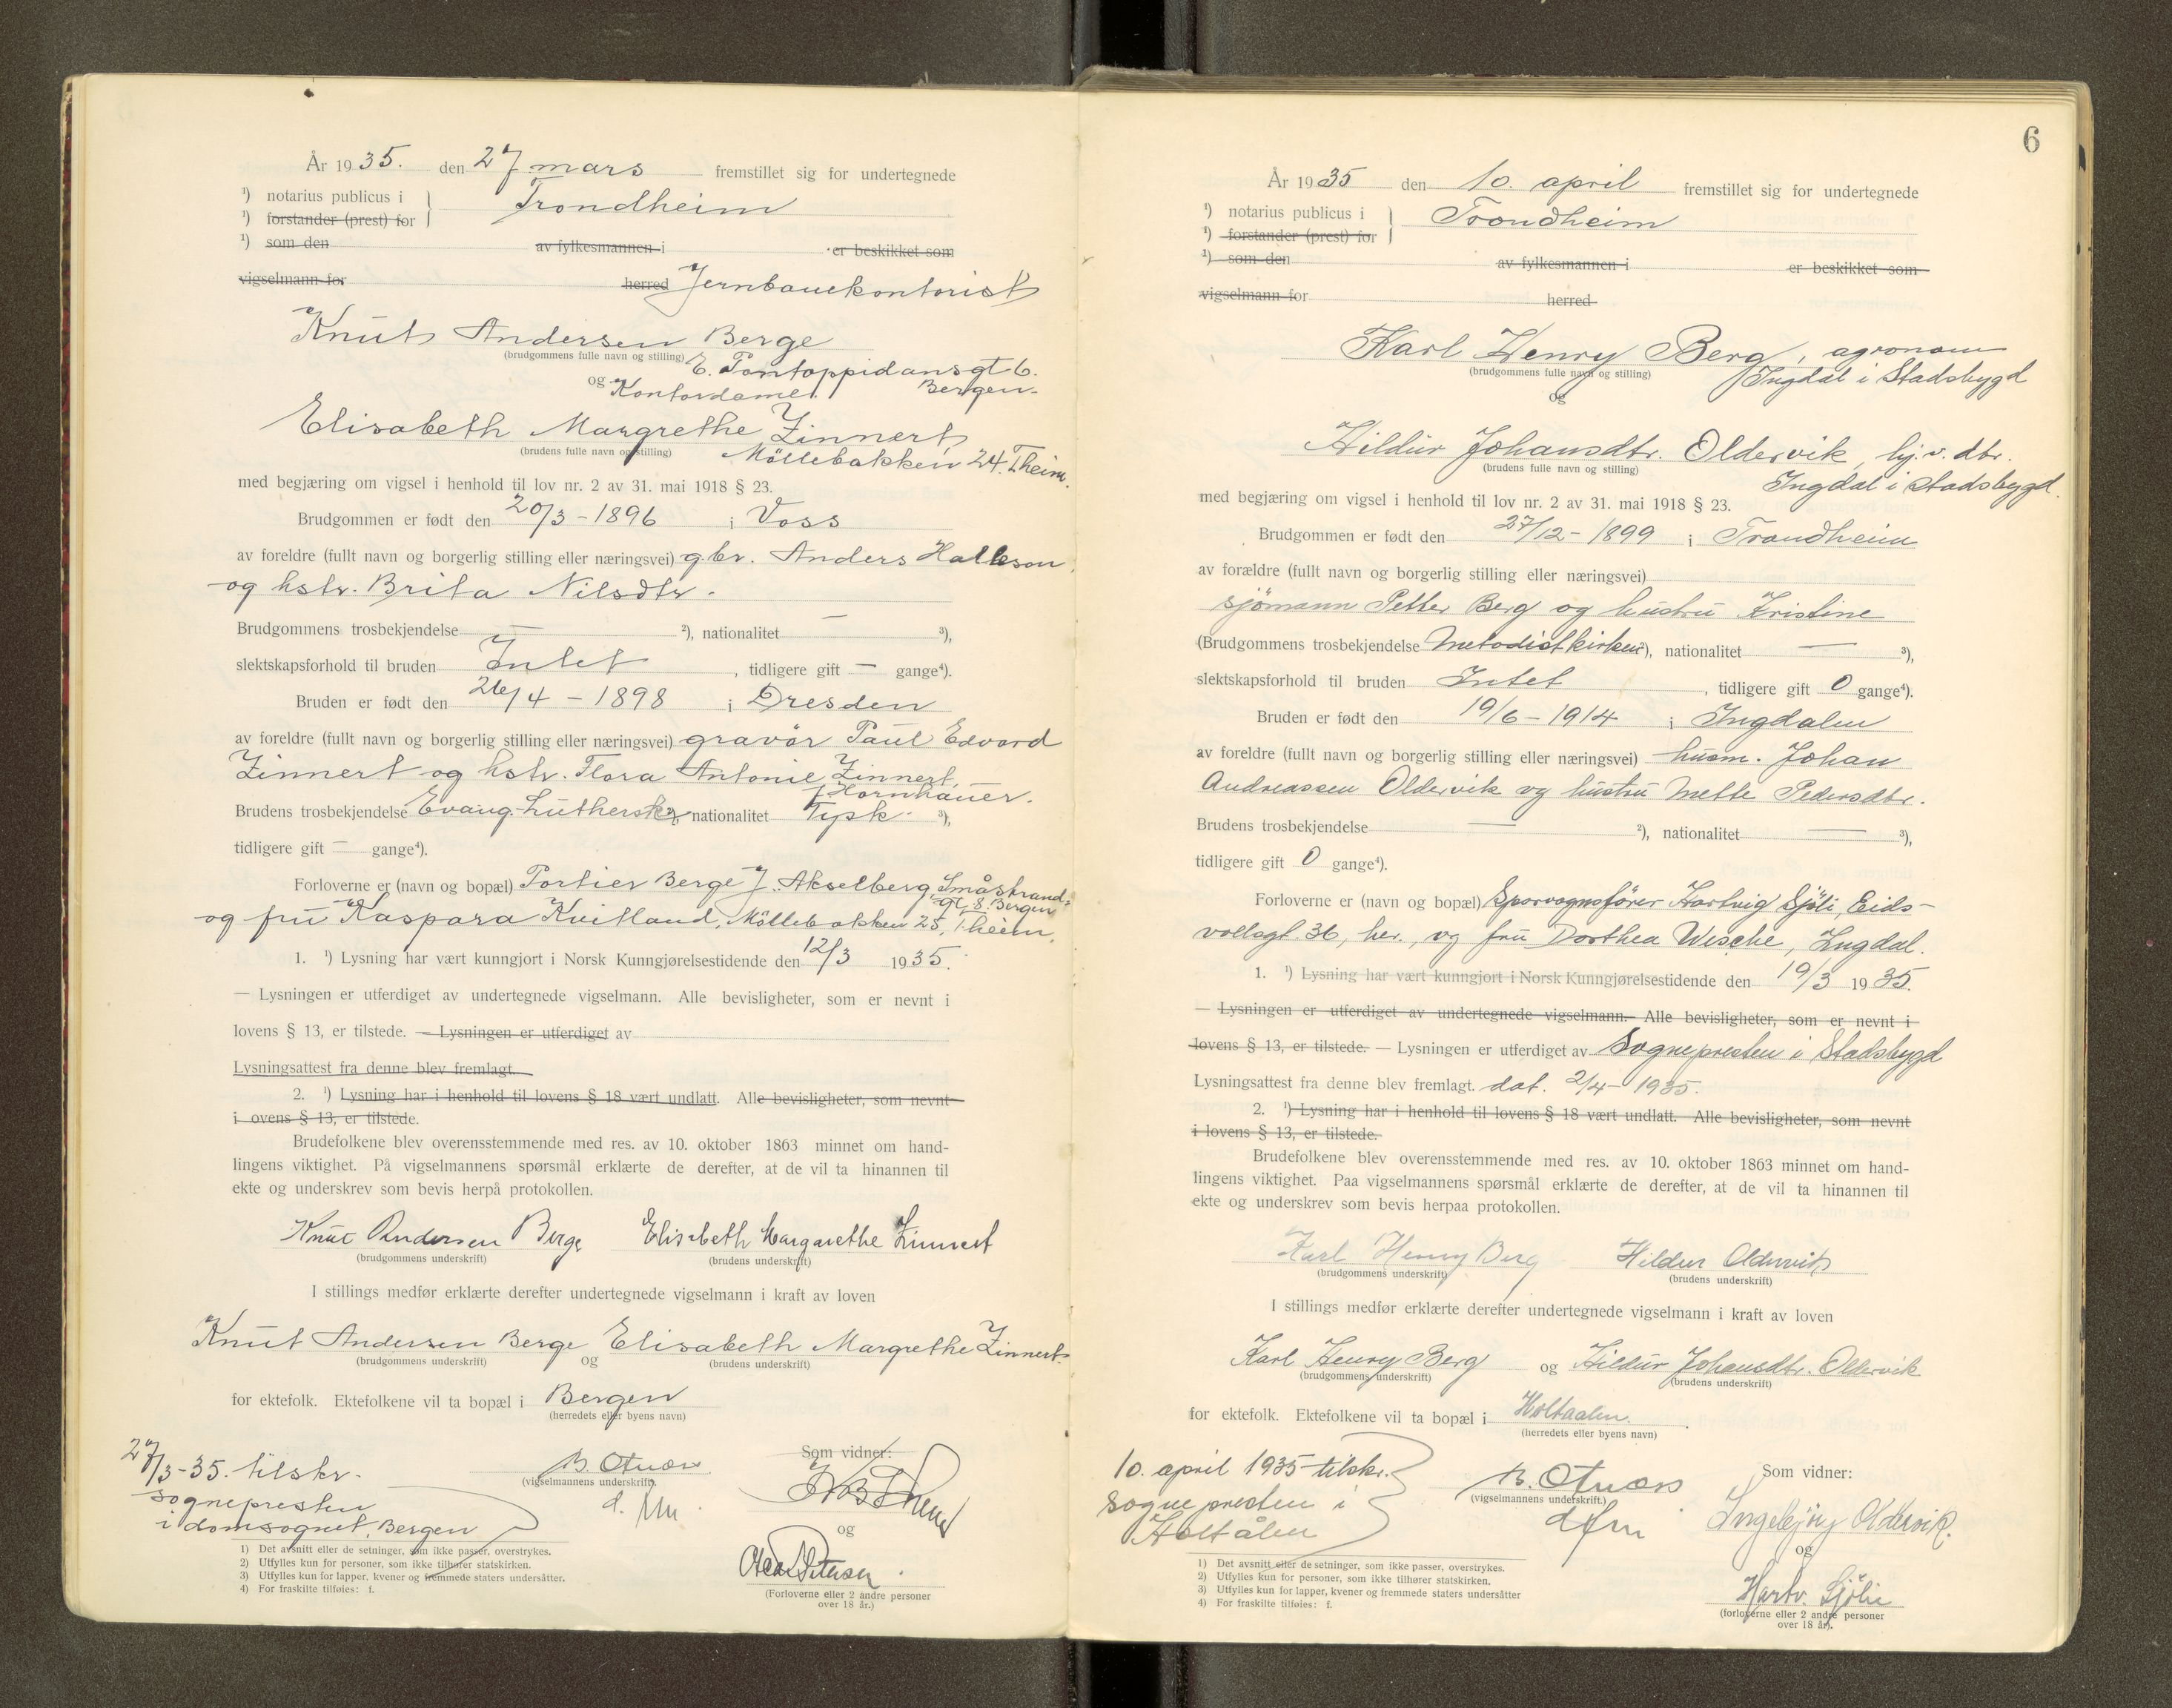 År 1935. den 27 mars fremstillet sig for undertegnede
¹) notarius publicus i Trondheim
¹) forstander (prest) for
¹) som den av fylkesmannen i er beskikket som
vigselmann for herred Jernbanekontorist
Knut Andersen Berge
(brudgommens fulle navn og stilling) E. Pontoppidansgt 6.
og Kontordame Bergen.
Elisabeth Margrethe Zinnert
(brudens fulle navn og stilling) Möllebakken 24. Theim.
med begjæring om vigsel i henhold til lov nr. 2 av 31. mai 1918 § 23.
Brudgommen er født den 20/3 - 1896 i Voss
av foreldre (fullt navn og borgerlig stilling eller næringsvei) gbr. Anders Halleson
og hstr. Brita Nilsdtr.
Brudgommens trosbekjendelse — ²), nationalitet — ³),
slektskapsforhold til bruden Intet, tidligere gift — gange⁴).
Bruden er født den 26/4 - 1898 i Dresden
av foreldre (fullt navn og borgerlig stilling eller næringsvei) gravör Paul Edvard
Zinnert og hstr. Flora Antonie Zinnert,
f. Hornhauer.
Brudens trosbekjendelse Evang.-Luthersk ²), nationalitet Tysk. ³),
tidligere gift — gange⁴).
Forloverne er (navn og bopæl) Portier Berge J. Akselberg, Småstrand-
gt. 8. Bergen
og fru Kaspara Kvitland, Möllebakken 25, Theim.
1. ¹) Lysning har vært kunngjort i Norsk Kunngjørelsestidende den 12/3 1935.
— Lysningen er utferdiget av undertegnede vigselmann. Alle bevisligheter, som er nevnt i
lovens § 13, er tilstede. — Lysningen er utferdiget av
Lysningsattest fra denne blev fremlagt.
2. ¹) Lysning har i henhold til lovens § 18 vært undlatt. Alle bevisligheter, som nevnt
i ovens § 13, er tilstede.
Brudefolkene blev overensstemmende med res. av 10. oktober 1863 minnet om hand-
lingens viktighet. På vigselmannens spørsmål erklærte de derefter, at de vil ta hinannen til
ekte og underskrev som bevis herpå protokollen.
Knut Andersen Berge Elisabeth Margarethe Zinnert
(brudgommens underskrift) (brudens underskrift)
I stillings medfør erklærte derefter undertegnede vigselmann i kraft av loven
Knut Andersen Berge og Elisabeth Margrethe Zinnert
(brudgommens underskrift) (brudens underskrift)
for ektefolk. Ektefolkene vil ta bopæl i Bergen
(herredets eller byens navn)
27/3-35. tilskr.
sognepresten
i domsognet, Bergen
(vigselmannens underskrift).
Som vidner:
og
(Forloverne eller 2 andre personer
over 18 år.)
1) Det avsnitt eller de setninger, som ikke passer, overstrykes.
2) Utfylles kun for personer, som ikke tilhører statskirken.
3) Utfylles kun for lapper, kvener og fremmede staters undersåtter.
4) For fraskilte tilføies: f.
6
År 1935 den 10. april fremstillet sig for undertegnede
¹) notarius publicus i Trondheim
¹) forstander (prest) for
¹) som den av fylkesmannen i er beskikket som
vigselmann for herred
Karl Henry Berg, agronom
(brudgommens fulle navn og stilling) Ingdal i Stadsbygd
og
Hildur Johansdtr. Oldervik, hj.v. dtr.
(brudens fulle navn og stilling) Ingdal i Stadsbygd.
med begjæring om vigsel i henhold til lov nr. 2 av 31. mai 1918 § 23.
Brudgommen er født den 27/12 - 1899 i Trondheim
av forældre (fullt navn og borgerlig stilling eller næringsvei)
sjömann Petter Berg og hustru Kristine
(Brudgommens trosbekjendelse Metodistkirken ²), nationalitet — ³),
slektskapsforhold til bruden Intet, tidligere gift 0 gange⁴).
Bruden er født den 19/6 - 1914 i Ingdalen
av foreldre (fullt navn og borgerlig stilling eller næringsvei) husm. Johan
Andreassen Oldervik og hustru Mette Pedersdtr.
Brudens trosbekjendelse — ²), nationalitet — ³),
tidligere gift 0 gange⁴).
Forloverne er (navn og bopæl) Sporvognsfører Hartvig Sjöli, Eids-
vollsgt. 36, her., og fru Dorthea Wesche, Ingdal.
1. ¹) Lysning har vært kunngjort i Norsk Kunngjørelsestidende den 19/3 1935.
— Lysningen er utferdiget av undertegnede vigselmann. Alle bevisligheter, som er nevnt i
lovens § 13, er tilstede. — Lysningen er utferdiget av Sognepresten i Stadsbygd
Lysningsattest fra denne blev fremlagt. dat. 2/4 - 1935.
2. ¹) Lysning har i henhold til lovens § 18 vært undlatt. Alle bevisligheter, som nevnt
i lovens § 13, er tilstede.
Brudefolkene blev overensstemmende med res. av 10. oktober 1863 minnet om hand-
lingens viktighet. Paa vigselmannens spørsmål erklærte de derefter, at de vil ta hinannen til
ekte og underskrev som bevis herpaa protokollen.
Karl Henry Berg Hildur Oldervik
(brudgommens underskrift) (brudens underskrift)
I stillings medfør erklærte derefter undertegnede vigselmann i kraft av loven
Karl Henry Berg og Hildur Johansdtr. Oldervik
(brudgommens underskrift) (brudens underskrift)
for ektefolk. Ektefolkene vil ta bopæl i Holtaalen.
(herredets eller byens navn)
10. april 1935 tilskr.
sognepresten i
Holtålen
(vigselmannens underskrift.)
Som vidner:
Ingebjörg Oldervik.
og
Hartv. Sjölie
(forloverne eller 2 andre personer
over 18 år).
1) Det avsnitt eller de setninger, som ikke passer, overstrykes.
2) Utfylles kun for personer, som ikke tilhører statskirken.
3) Utfylles kun for lapper, kvener og fremmede staters undersåtter
4) For fraskilte tilføies: f.